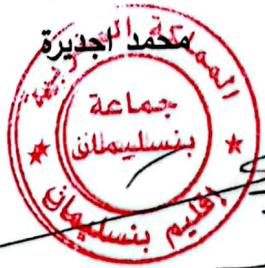 محمد اجديرة
المملكة المغربية
جماعة
بنسليمان
إقليم بنسليمان